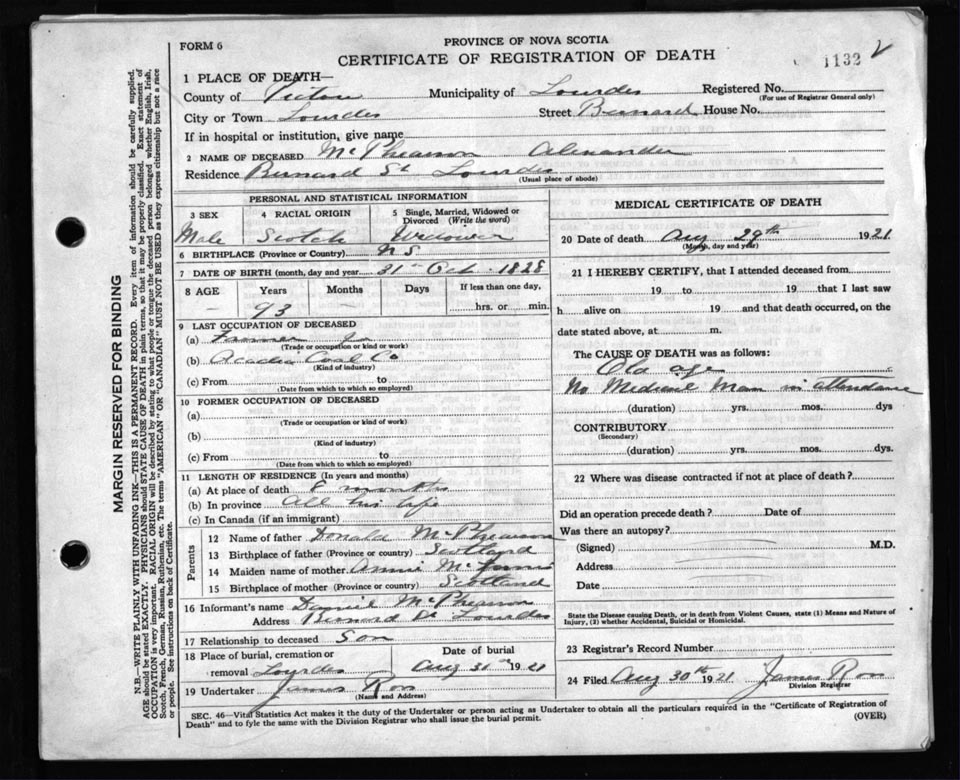 FORM 6
PROVINCE OF NOVA SCOTIA
CERTIFICATE OF REGISTRATION OF DEATH
1132
1 PLACE OF DEATH—
County of Pictou Municipality of Lourdes Registered No.
(For use of Registrar General only)
City or Town Lourdes Street Bernard House No.
If in hospital or institution, give name
2 NAME OF DECEASED McPhearson Alexander
Residence Bernard St Lourdes
(Usual place of abode)
PERSONAL AND STATISTICAL INFORMATION
3 SEX 4 RACIAL ORIGIN 5 Single, Married, Widowed or
Divorced (Write the word)
Male Scotch Widower
6 BIRTHPLACE (Province or Country) N S.
7 DATE OF BIRTH (month, day and year) 31 Oct. 1828
8 AGE Years Months Days If less than one day,
— 93 — hrs. or min.
9 LAST OCCUPATION OF DECEASED
(a) Farmer
(Trade or occupation or kind or work)
(b) Acadia Coal Co
(Kind of industry)
(c) From to
(Date from which to which so employed)
10 FORMER OCCUPATION OF DECEASED
(a)
(Trade or occupation or kind of work)
(b)
(Kind of industry)
(c) From to
(Date from which to which so employed)
11 LENGTH OF RESIDENCE (In years and months)
(a) At place of death 8 months
(b) In province All his life
(c) In Canada (if an immigrant)
Parents
12 Name of father Donald McPhearson
13 Birthplace of father (Province or country) Scotland
14 Maiden name of mother Annie
15 Birthplace of mother (Province or country) Scotland
16 Informant's name Daniel McPhearson
Address Bernard St Lourdes
17 Relationship to deceased Son
18 Place of burial, cremation or Date of burial
removal Lourdes Aug 31 1921
19 Undertaker James Ross
(Name and Address)
MEDICAL CERTIFICATE OF DEATH
20 Date of death Aug 29th 1921
(Month, day and year)
21 I HEREBY CERTIFY, that I attended deceased from
19 to 19 that I last saw
h alive on 19 and that death occurred, on the
date stated above, at m.
The CAUSE OF DEATH was as follows:
Old age
No Medical Man in attendance
(duration) yrs. mos. dys
CONTRIBUTORY
(Secondary)
(duration) yrs. mos. dys
22 Where was disease contracted if not at place of death?
Did an operation precede death? Date of
Was there an autopsy?
(Signed) M.D.
Address
Date
State the Disease causing Death, or in death from Violent Causes, state (1) Means and Nature of
Injury, (2) whether Accidental, Suicidal or Homicidal.
23 Registrar's Record Number
24 Filed Aug 30th 1921 James Ross
Division Registrar
SEC. 46—Vital Statistics Act makes it the duty of the Undertaker or person acting as Undertaker to obtain all the particulars required in the "Certificate of Registration of
Death" and to fyle the same with the Division Registrar who shall issue the burial permit. (OVER)
MARGIN RESERVED FOR BINDING
N.B.—WRITE PLAINLY WITH UNFADING INK—THIS IS A PERMANENT RECORD. Every item of information should be carefully supplied.
AGE should be stated EXACTLY. PHYSICIANS should STATE CAUSE OF DEATH in plain terms, so that it may be properly classified. Exact statement of
OCCUPATION is very important. RACIAL ORIGIN will be described by stating to what people or tongue the deceased person belonged whether English, Irish,
Scotch, French, German, Russian, Ruthenian, etc. The terms "AMERICAN" OR "CANADIAN" MUST NOT BE USED as they express citizenship but not a race
or people. See instructions on back of Certificate.